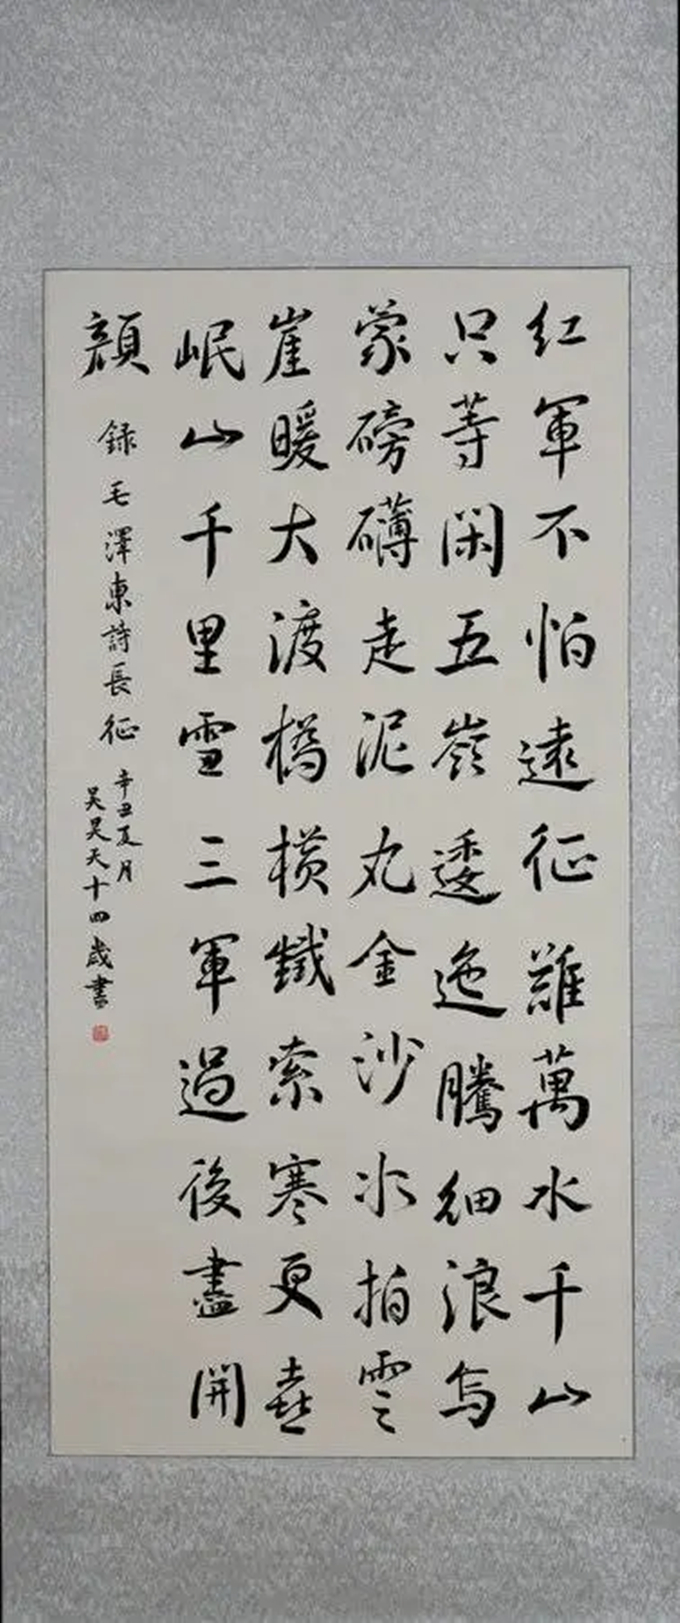 紅軍不怕遠征難萬水千山
只等閑五嶺逶迤騰細浪烏
蒙磅礴走泥丸金沙水拍雲
崖暖大渡橋橫鐵索寒更喜
岷山千里雪三軍過後盡開
顏
録毛澤東詩長征
辛丑夏月
吴昊天十四歲書